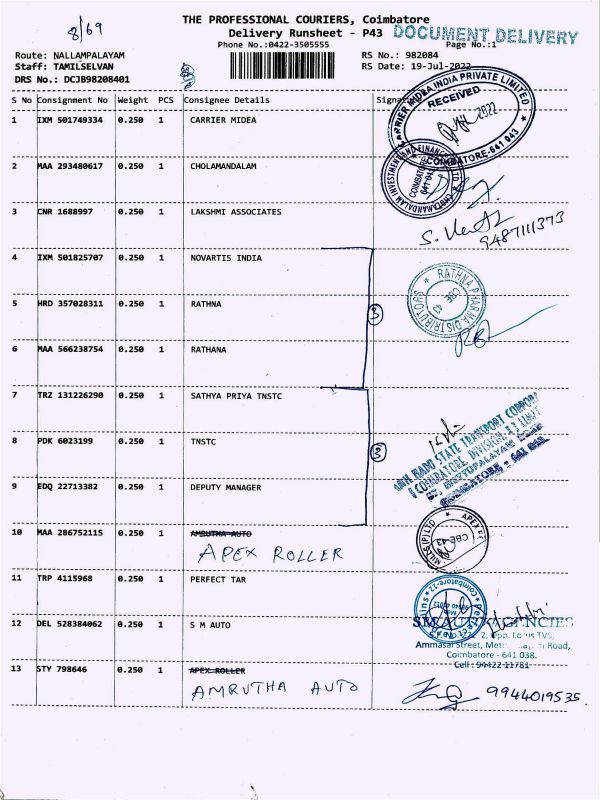 8/69
THE PROFESSIONAL COURIERS, Coimbatore
Delivery Runsheet - P43
DOCUMENT DELIVERY
Phone No.:0422-3505555
Page No.:1
Route: NALLAMPALAYAM
RS No.: 982084
Staff: TAMILSELVAN
RS Date: 19-Jul-2022
DRS No.: DCJB98208401
S No Consignment No Weight PCS Consignee Details
1 IXM 501749334 0.250 1 CARRIER MIDEA
CARRIER MIDEA INDIA PRIVATE LIMITED
RECEIVED
2022
COIMBATORE-641 043
2 MAA 293480617 0.250 1 CHOLAMANDALAM
CHOLAMANDALAM INVESTMENT AND FINANCE
3 CNR 1688997 0.250 1 LAKSHMI ASSOCIATES
9487111373
4 IXM 501825707 0.250 1 NOVARTIS INDIA
RATHNA PHARMA DISTRIBUTORS
CBE 43
5 HRD 357028311 0.250 1 RATHNA
3
6 MAA 566238754 0.250 1 RATHANA
7 TRZ 131226290 0.250 1 SATHYA PRIYA TNSTC
STATE TRANSPORT CORPOR
8 PDK 6023199 0.250 1 TNSTC
3
(COIMBATORE, DIVISION
COIMBATORE - 641 043
9 EDQ 22713382 0.250 1 DEPUTY MANAGER
10 MAA 286752115 0.250 1 AMRUTHA AUTO
APEX ROLLER
APEX
MILLS (P) LTD
CBE-43
11 TRP 4115968 0.250 1 PERFECT TAR
Coimbatore-12
12 DEL 528384062 0.250 1 S M AUTO
SM AUTO AGENCIES
TVS,
Ammasai Street, Road,
Coimbatore - 641 038.
Cell : 94422 11781
13 STY 798646 0.250 1 APEX ROLLER
AMRUTHA AUTO
9944019535